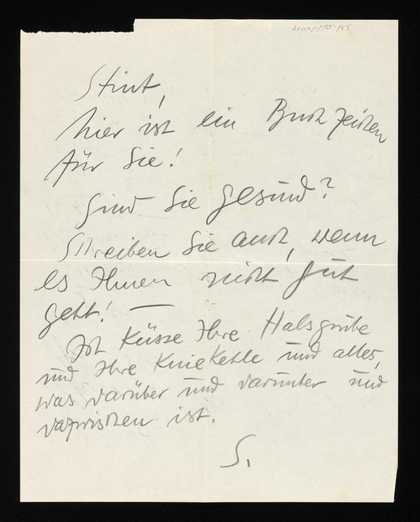 Stint,
hier ist ein Buchzeichen
für Sie!
Sind Sie gesund?
Schreiben Sie auch, wenn
es Ihnen nicht gut
geht! —
Ich küsse Ihre Halsgrube
und Ihre Kniekehle und alles,
was darüber und darunter und
dazwischen ist.
S.